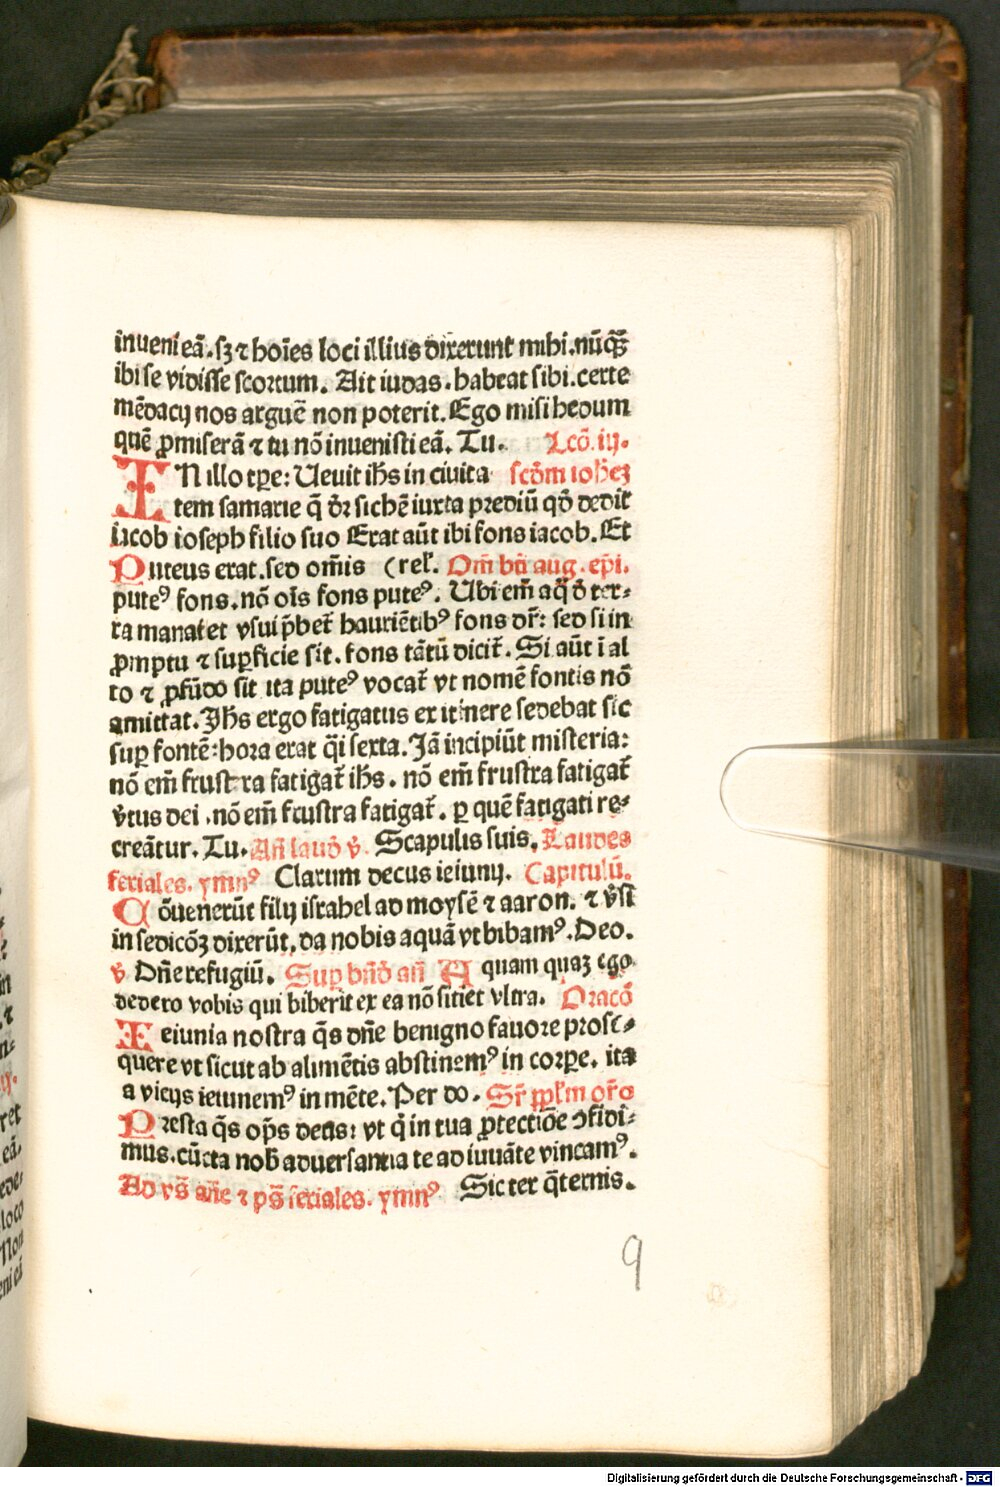 inueni eã. sꝫ ⁊ hoīes loci illius dixerunt mihi. nūq̃ꝫ
ibi se vidisse scortum. Ait iudas. habeat sibi. certe
mēdacij nos arguē non poterit. Ego misi hedum
quē ꝓmiserã ⁊ tu nõ inuenisti eã. Tu. Lcõ. iij.
IN illo tp̃e: Ueuit ih̃s in ciuita scḋm ioh̃eꝫ
tem samarie q̃ dr̃ sichē iuxta prediũ qḋ dedit
iacob ioseph filio suo Erat aũt ibi fons iacob. Et
Puteus erat. sed om̃is (rel̃. Om̃ bti aug. ep̃i.
puteꝰ fons. nõ oĩs fons puteꝰ. Ubi em̃ aq̃ ḋ ter⸗
ra manat et vsui p̃bet̃ hauriẽtibꝰ fons dr̃: sed si in
ꝓmptu ⁊ suꝑficie sit. fons tãtũ dicit̃. Si aũt ĩ al
to ⁊ ꝓfũdo sit ita puteꝰ vocat̃ vt nomẽ fontis nõ
amittat. Jh̃s ergo fatigatus ex itinere sedebat sic
suꝑ fontẽ: hora erat q̃i sexta. Jã incipiũt misteria:
nõ em̃ frustra fatigat̃ ih̃s. nõ em̃ frustra fatigat̃
ṽtus dei. nõ em̃ frustra fatigat̃. ꝑ quẽ fatigati re⸗
creãtur. Tu. Añ lauḋ ṽ. Scapulis suis. Laudes
feriales. ymnꝰ Clarum decus ieiunij. Capitulũ.
Cõuenerũt filij israhel ad moysẽ ⁊ aaron. ⁊ ṽsi
in sedicõꝫ dixerũt, da nobis aquã vt bibamꝰ. Deo.
ṽ. Dñe refugiũ. Suꝑ bñḋ añ Aquam quaꝫ ego
dedero vobis qui biberit ex ea nõ sitiet vltra. Oracõ
Ieiunia nostra q̃s dñe benigno fauore prose⸗
quere vt sicut ab alimẽtis abstinemꝰ in corpe. ita
a vicijs ieiunemꝰ in mẽte. Per do. Sr̃ ppl̃m or̃o
Presta q̃s op̃s deus: vt q̃ in tua ꝓtectiõe ꝯfidi⸗
mus. cũcta nob̃ aduersantia te adiuuãte vincamꝰ.
Ad vs̃ añe ⁊ ps̃ feriales. ymnꝰ Sic ter q̃ternis.
9
Digitalisierung gefördert durch die Deutsche Forschungsgemeinschaft - DFG